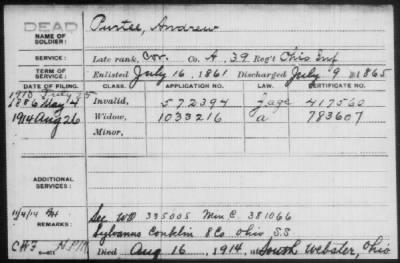 DEAD
NAME OF SOLDIER:
Purtee, Andrew
SERVICE:
Late rank, Cor. Co. A, 39 Reg't Ohio Inf
TERM OF SERVICE:
Enlisted July 16, 1861 Discharged July 9, 1865
DATE OF FILING. CLASS. APPLICATION NO. LAW. CERTIFICATE NO.
1886 May 4 Invalid, 572394 417560
1914 Aug 26 Widow, 1033216 a 783607
Minor,
ADDITIONAL SERVICES:
REMARKS:
See WO 335005 Min C. 381066
Sylvanus Conklin 8 Co Ohio S.S.
Died Aug 16, 1914, at South Webster, Ohio